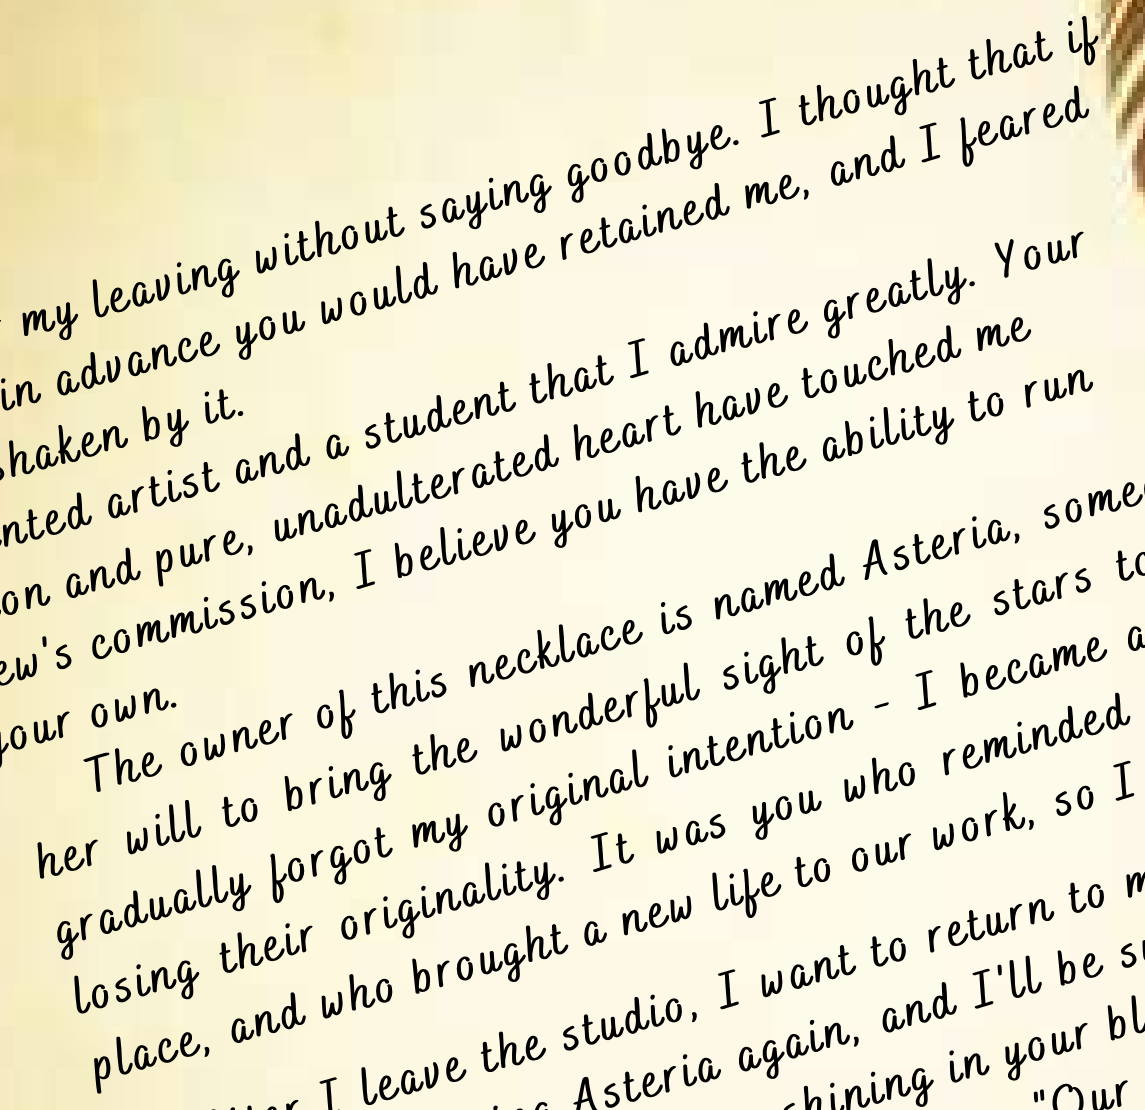 my leaving without saying goodbye. I thought that if
in advance you would have retained me, and I feared
shaken by it.
artist and a student that I admire greatly. Your
and pure, unadulterated heart have touched me
commission, I believe you have the ability to run
your own.
The owner of this necklace is named Asteria,
her will to bring the wonderful sight of the stars
gradually forgot my original intention - I became
losing their originality. It was you who reminded
place, and who brought a new life to our work, so I
I leave the studio, I want to return to
Asteria again, and I'll be
shining in your
"Our